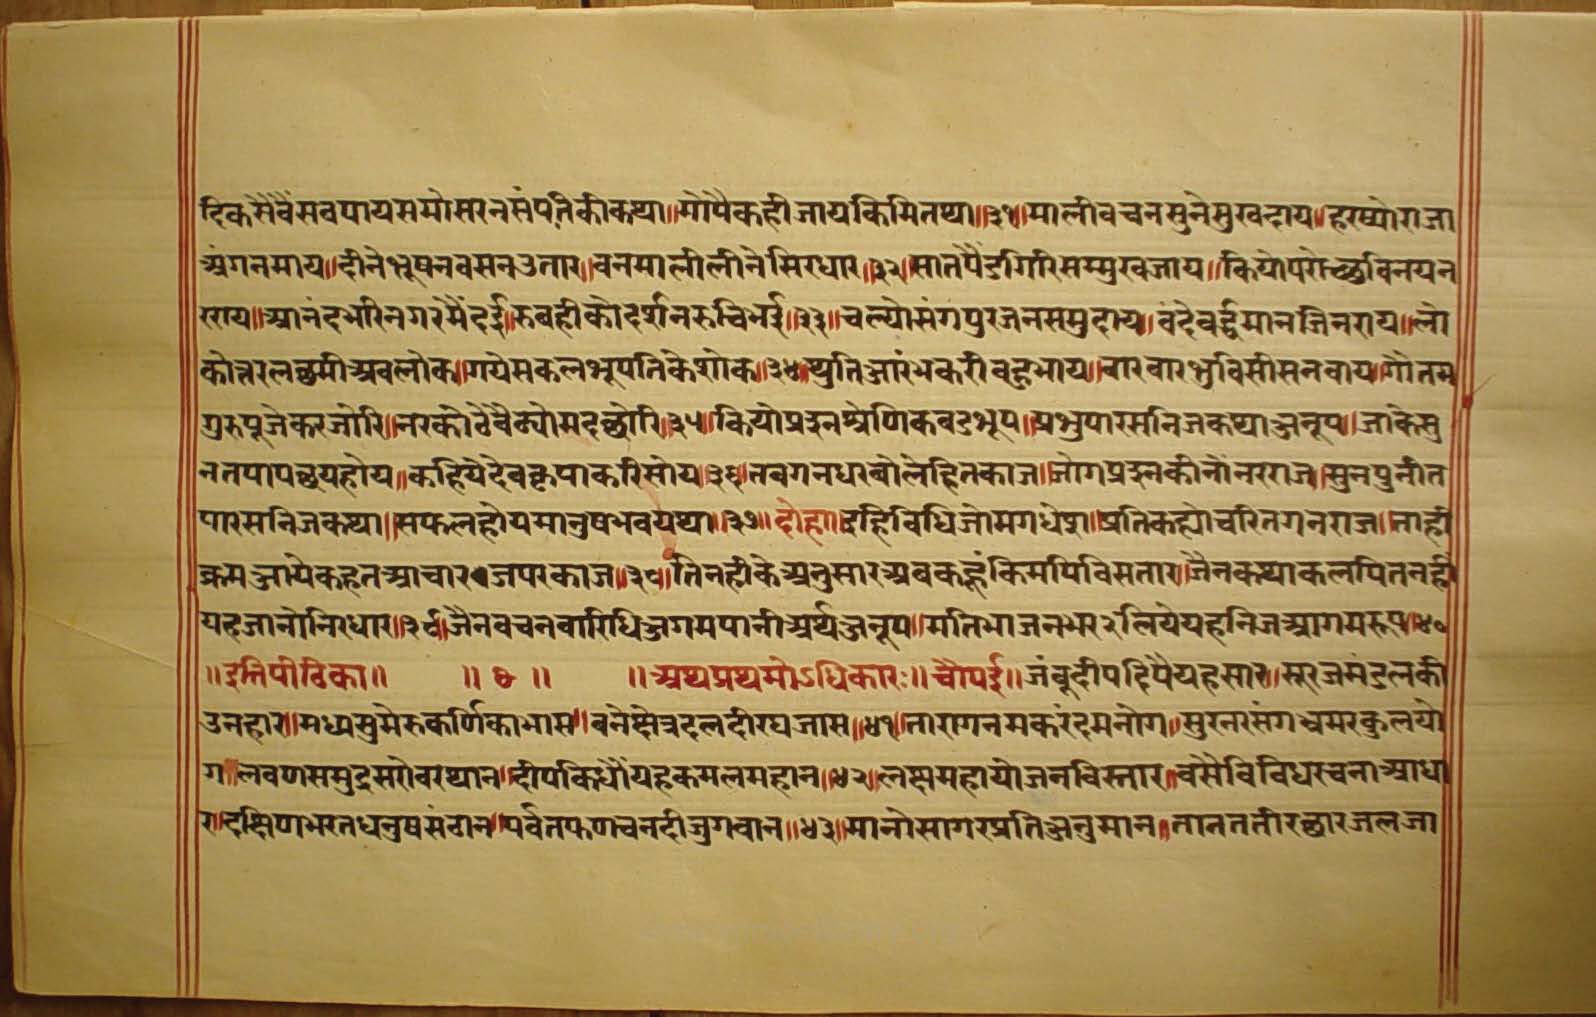 दिकसैवैंसवपायसमोसरनसंपतिकीकथा॥मोपैकहीजायकिमितथा॥३१॥मालीवचनसुनेसुखदाय॥हरष्योराजा
अंगनमाय॥दीनेभूषनवसनउतार॥वनमालीलीनेसिरधार॥३२॥सातपैंडगिरिसम्मुखजाय॥कियोपरोच्छविनयन
रराय॥आनंदभेरिनगरमैंदई॥सबहीकोदर्शनरुचिभई॥३३॥चल्योसंगपुरजनसमुदाय॥वंदेवर्द्धमानजिनराय॥लो
कोत्तरलछमीअवलोक॥गयेसकलभूपतिकेशोक॥३४॥थुतिआरंभकरीबहुभाय॥बारबारभुविसीसनवाय॥गौतम
गुरुपूजेकरजोरि॥नरकोठेबैठ्योमदछोरि॥३५॥कियोप्रश्नश्रेणिकबडभूप॥प्रभुपारसनिजकथाअनूप॥जाकेसु
नतपापछयहोय॥कहियेदेवकृपाकरिसोय॥३६॥तबगनधरबोलेहितकाज॥जोगप्रश्नकीनोंनरराज॥सुनपुनीत
पारसनिजकथा॥सफलहोयमानुषभवयथा॥३७॥दोहा॥इहिविधिजोमगधेश॥प्रतिकह्योचरितगनराज॥ताही
क्रमआयेकहतआचारजपरकाज॥३८॥तिनहीकेअनुसारअबकहूंकिमपिविसतार॥जैनकथाकलपितनही
यहजानोनिरधार॥३९॥जैनवचनवारिधिअगमपानीअर्थअनूप॥मतिभाजनभर२लियेयहनिजआगमरूप॥४०
॥इतिपीठिका॥ ॥छ॥ ॥अथप्रथमोऽधिकारः॥चौपई॥जंबूदीपदिपैयहसार॥सूरजमंडलकी
उनहार॥मध्यसुमेरुकर्णिकाभास॥बनेक्षेत्रदलदीरघजास॥४१॥तारागनमकरंदमनोग॥सुरनरसंगभ्रमरकुलयो
ग॥लवणसमुद्रसरोवरथान॥दीपकिधौंयहकमलमहान॥४२॥लक्षमहायोजनविस्तार॥बसैविविधरचनाआधा
र॥दक्षिणभरतधनुषसंठान॥पर्वतफणचनदीजुगवान॥४३॥मानोसागरप्रतिअनुमान॥तानततीरछारजलजा